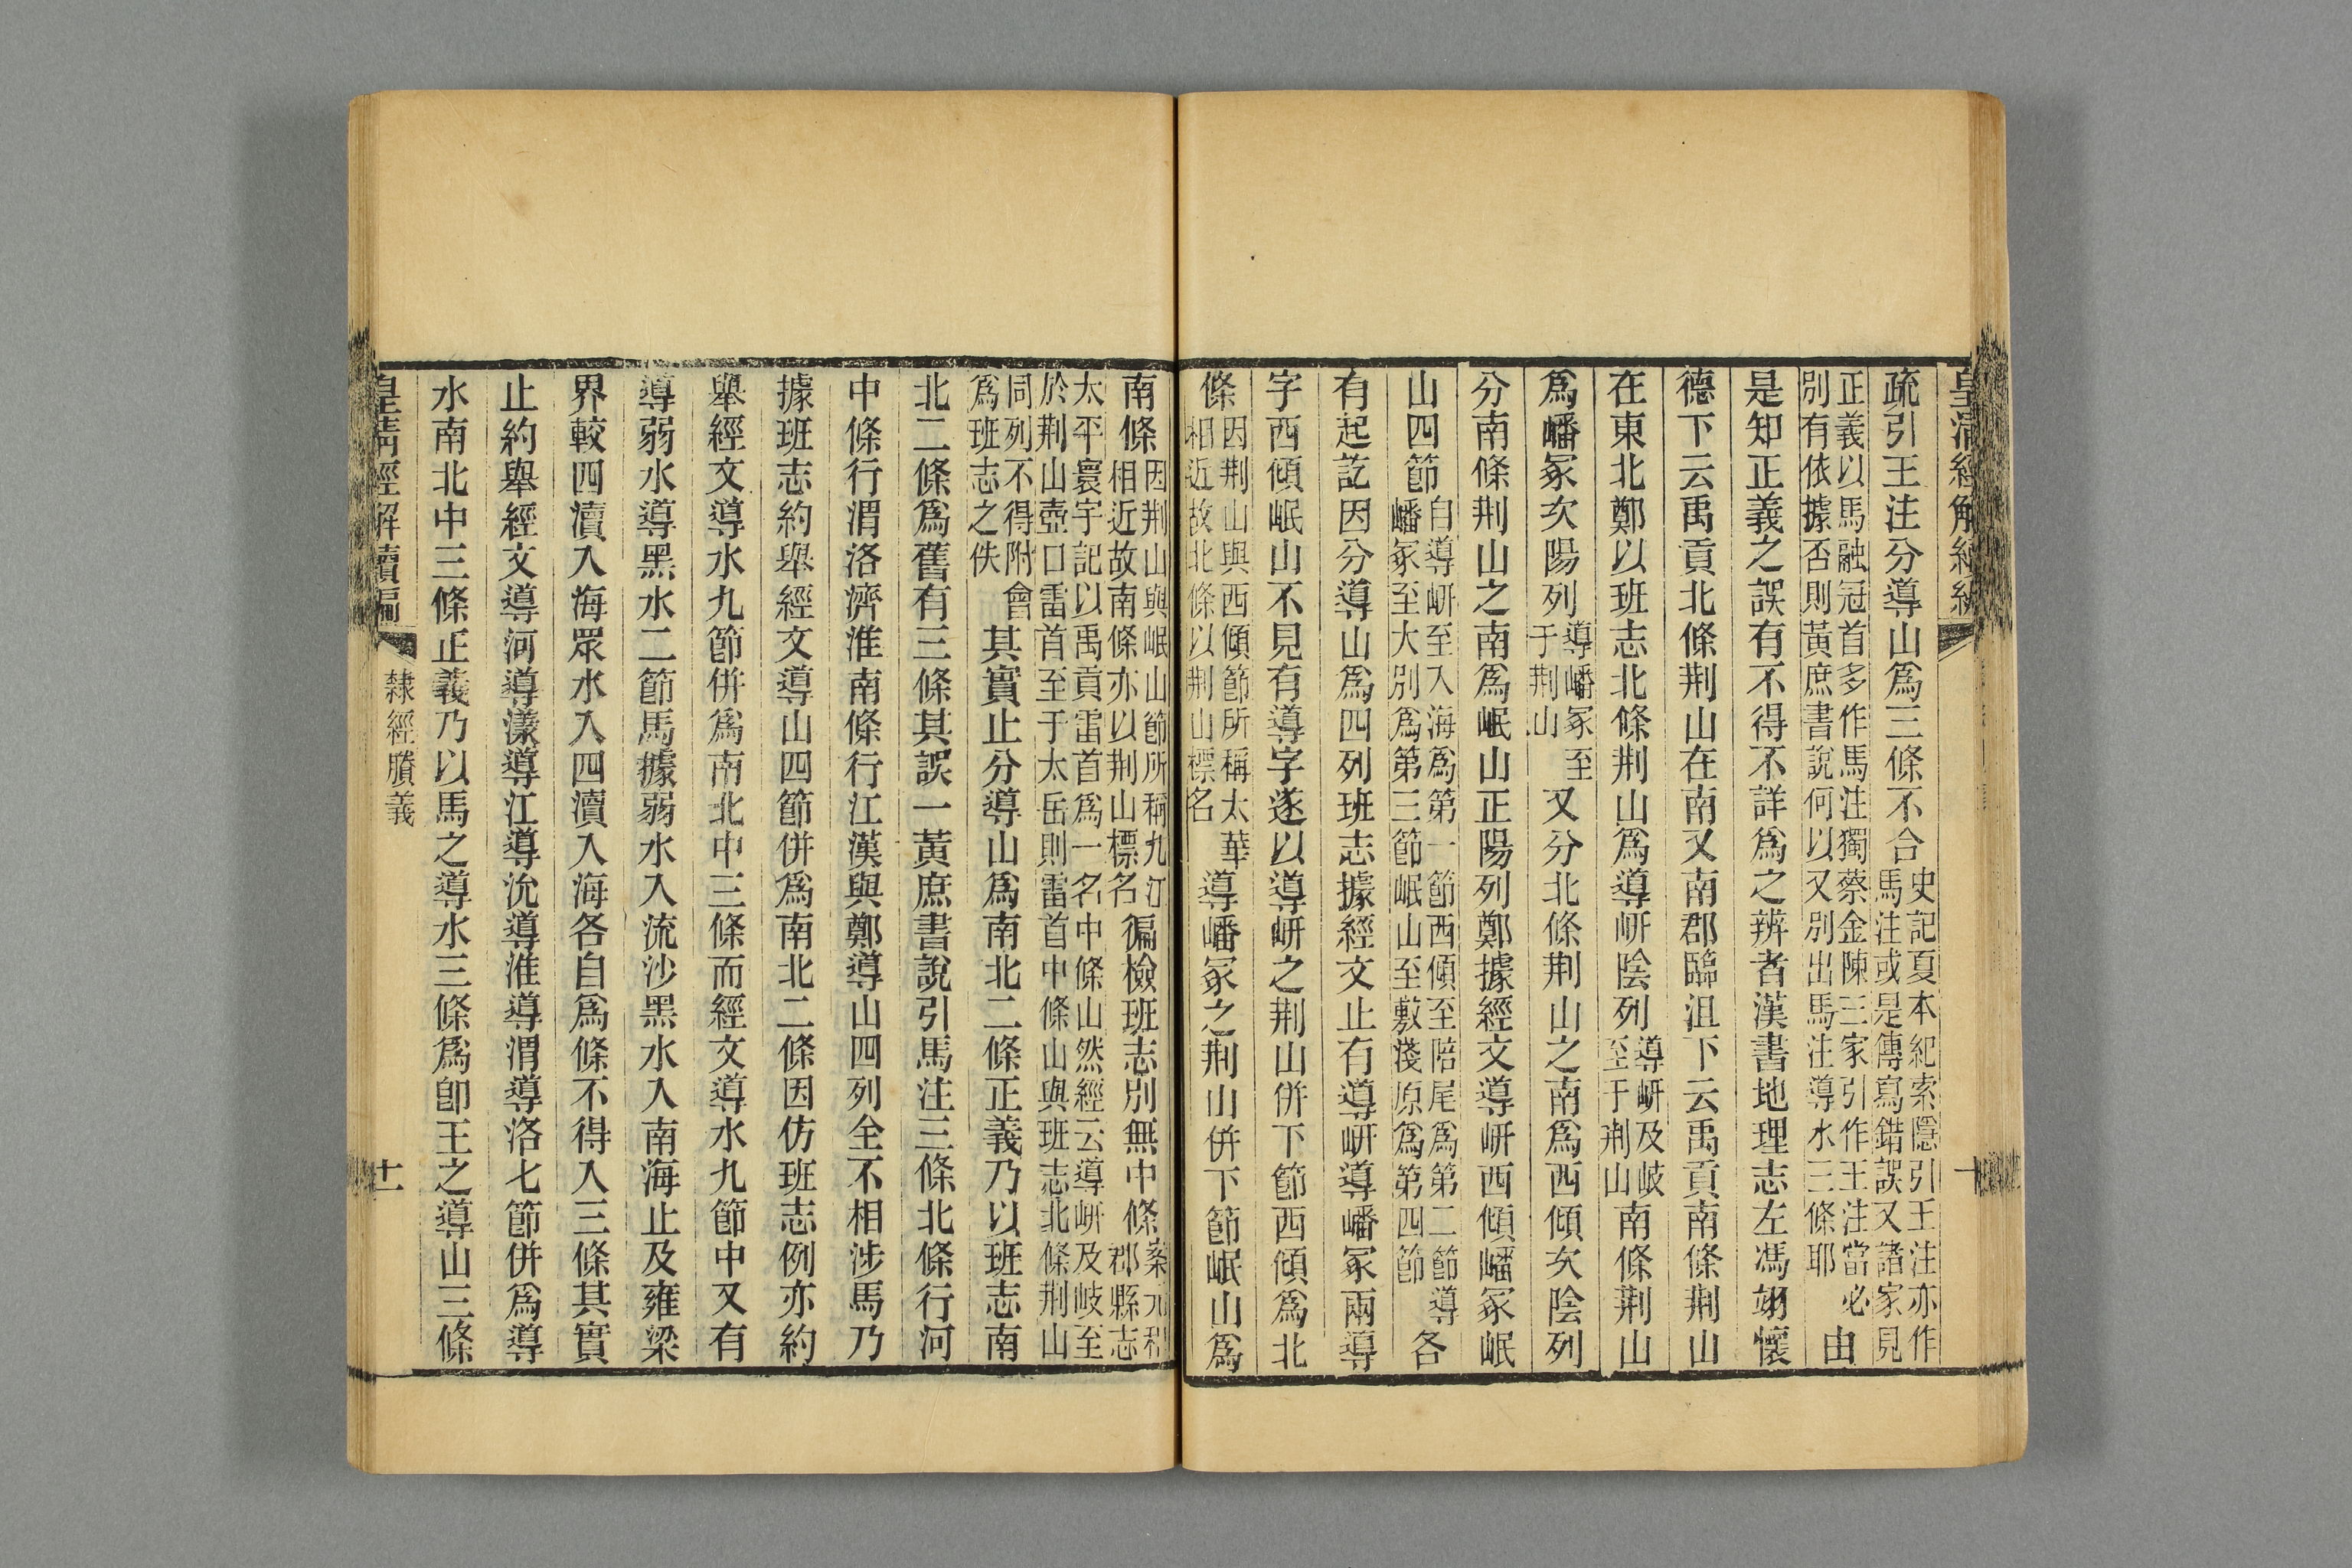 皇清經解續編
疏引王注分導山爲三條不合史記夏本紀索隱引王注亦作馬注或是傳寫錯誤又諸家見
正義以馬融冠首多作馬注獨蔡金陳三家引作王注當必別有依據否則黃庶書說何以又別出馬注導水三條耶由
是知正義之誤有不得不詳爲之辨者漢書地理志左馮翊懷
德下云禹貢北條荆山在南又南郡臨沮下云禹貢南條荆山
在東北鄭以班志北條荆山爲導岍陰列導岍及岐至于荆山南條荆山
爲嶓冢次陽列導嶓冢至于荆山又分北條荆山之南爲西傾次陰列
分南條荆山之南爲岷山正陽列鄭據經文導岍西傾嶓冢岷
山四節自導岍至入海爲第一節西傾至陪尾爲第二節導嶓冢至大別爲第三節岷山至敷淺原爲第四節各
有起訖因分導山爲四列班志據經文止有導岍導嶓冢兩導
字西傾岷山不見有導字遂以導岍之荆山併下節西傾爲北
條因荆山與西傾節所稱太華相近故北條以荆山標名導嶓冢之荆山併下節岷山爲
南條因荆山與岷山節所稱九江相近故南條亦以荆山標名徧檢班志別無中條案元和郡縣志
太平寰宇記以禹貢雷首爲一名中條山然經云導岍及岐至於荆山壺口雷首至于太岳則雷首中條山與班志北條荆山
同列不得附會爲班志之佚其實止分導山爲南北二條正義乃以班志南
北二條爲舊有三條其誤一黃庶書說引馬注三條北條行河
中條行渭洛濟淮南條行江漢與鄭導山四列全不相涉馬乃
據班志約舉經文導山四節併爲南北二條因仿班志例亦約
舉經文導水九節併爲南北中三條而經文導水九節中又有
導弱水導黑水二節馬據弱水入流沙黑水入南海止及雍梁
界較四瀆入海眾水入四瀆入海各自爲條不得入三條其實
止約舉經文導河導漾導江導沇導淮導渭導洛七節併爲導
水南北中三條正義乃以馬之導水三條爲卽王之導山三條
皇清經解續編
隸經賸義
十一